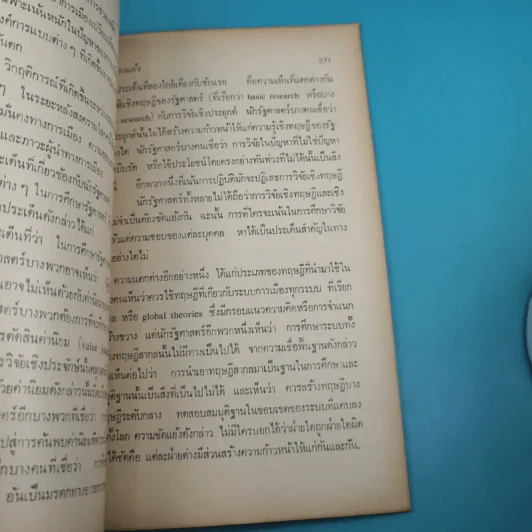 าพะเน้นหนักในปัญหา
งค์การแบบต่าง ๆ ที่เกิดขึ้น
นตก
วิกฤติการณ์ที่เกิดขึ้นระหว่าง
ๆ ในระยะหลังสงคราม
มั่นคงทางการเมือง ความ
และภาวะผู้นำทางการเมือง
ะเด็นที่เกี่ยวข้องกับนักรัฐศาส
ต่าง ๆ ในการศึกษารัฐศาสตร์
ประเด็นดังกล่าวได้แก่
ด็นที่ว่า ในการศึกษารัฐ
าสตร์บางพวกอาจเห็นว่า
อาจไม่เห็นด้วยกับค่านิยม
สตร์บางพวกต้องการที่จะ
รตัดสินค่านิยม (value
รวิจัยเชิงประจักษ์นั้น
ด้วยค่านิยมดังกล่าวนั้น
ตร์อีกบางพวกที่เชื่อว่า
ปสู่การค้นพบค่านิยม
กบางคนที่เชื่อว่า
อันเป็นมรดกทาง
271
ระเด็นที่สองใกล้เคียงกับข้อแรก คือความเห็นที่แตกต่างกัน
เชิงทฤษฎีของรัฐศาสตร์ (ที่เรียกว่า basic research หรือบาง
research) กับการวิจัยเชิงประยุกต์ นักรัฐศาสตร์บางคนเชื่อว่า
ระยุกต์นั้นไม่ได้สร้างความก้าวหน้าให้แก่ความรู้เชิงทฤษฎีของรัฐ-
ใด นักรัฐศาสตร์บางคนเชื่อว่า การวิจัยในปัญหาที่ไม่ใช่ปัญหา
บรัด หรือใช้ประโยชน์โดยตรงอย่างทันท่วงทีไม่ได้นั้นเป็นสิ่ง
อีกพวกหนึ่งที่เน้นการปฏิบัติมักจะปฏิเสธการวิจัยเชิงทฤษฎี
นักรัฐศาสตร์ทั้งหลายไม่ได้ถือว่าการวิจัยเชิงทฤษฎีและเชิง
ม่จำเป็นต้องขัดแย้งกัน ฉะนั้น การที่ใครจะเน้นในการศึกษาวิจัย
แล้วแต่ความชอบของแต่ละบุคคล หาได้เป็นประเด็นสำคัญในทาง
อย่างใดไม่
ความแตกต่างอีกอย่างหนึ่ง ได้แก่ประเภทของทฤษฎีที่นำมาใช้ใน
งคนเห็นว่าควรใช้ทฤษฎีที่เกี่ยวกับระบบการเมืองทุกระบบ ที่เรียก
ล หรือ global theories ซึ่งมีกรอบแนวความคิดหรือการจำแนก
้างขวาง แต่นักรัฐศาสตร์อีกพวกหนึ่งเห็นว่า การศึกษาระบบทั้ง
ทฤษฎีสากลนั้นไม่มีทางเป็นไปได้ จากความเชื่อพื้นฐานดังกล่าว
เห็นต่อไปว่า การนำเอาทฤษฎีสากลมาเป็นฐานในการศึกษาและ
ติฐานนั้นเป็นสิ่งที่เป็นไปไม่ได้ และเห็นว่า ควรสร้างทฤษฎีบาง
ฎีระดับกลาง ทดสอบสมมุติฐานในขอบเขตของระบบที่แคบลง
ทั้งโลก ความขัดแย้งดังกล่าว ไม่มีใครบอกได้ว่าฝ่ายใดถูกฝ่ายใดผิด
ได้ชัดคือ แต่ละฝ่ายต่างมีส่วนสร้างความก้าวหน้าให้แก่กันและกัน.